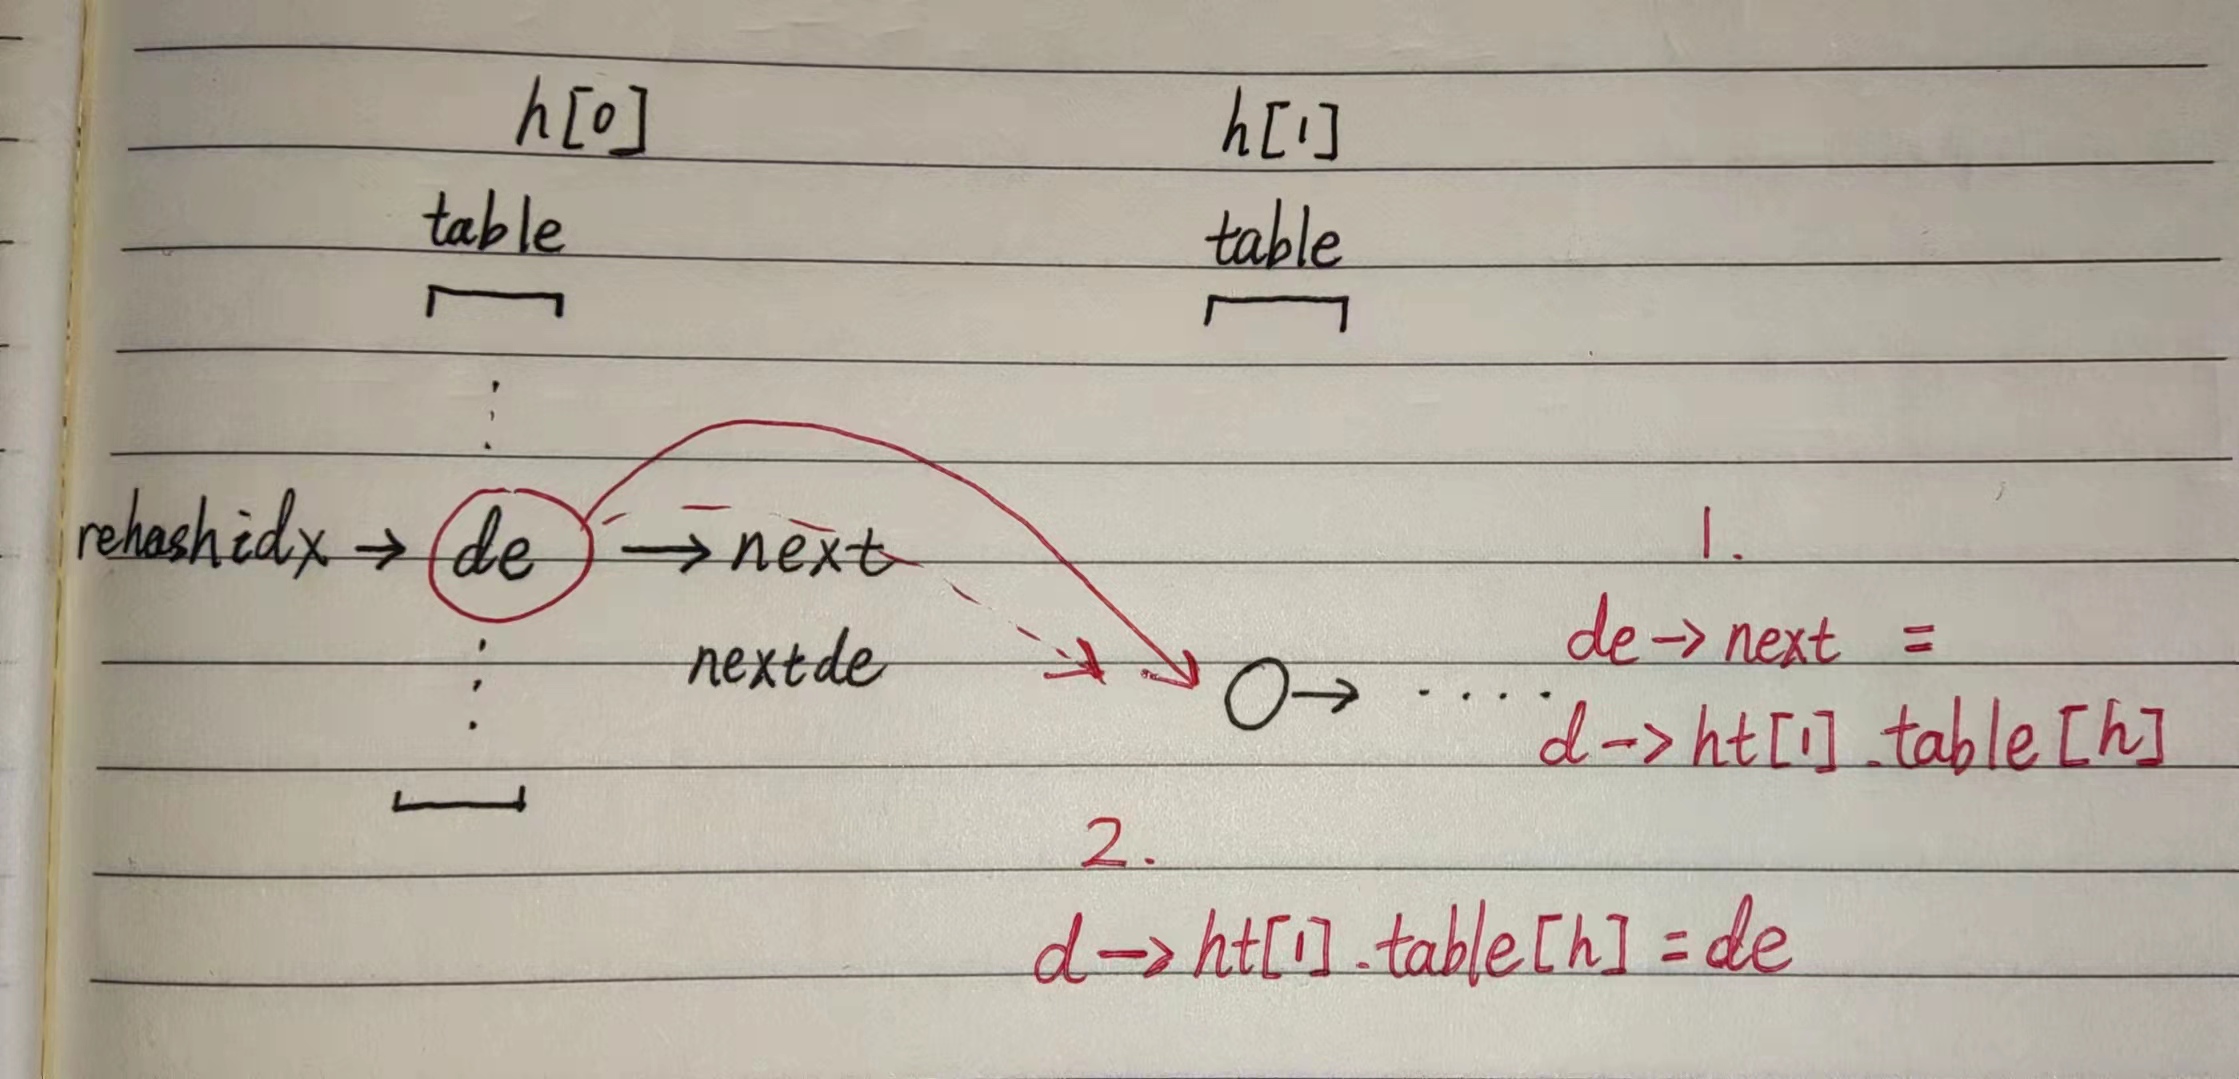 h[0] h[1]
table table
rehashidx → de → next
1.
de → next =
nextde
→ ....
d → ht[1].table[h]
2.
d → ht[1].table[h] = de